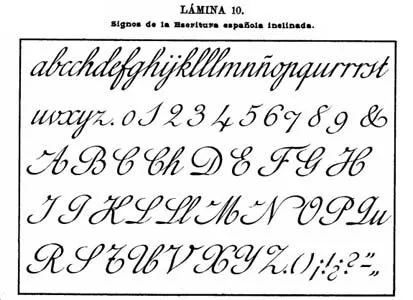 LÁMINA 10.
Signos de la Escritura española inclinada.
abcchdefghijklllmnñopqurrrst
uvxyz. 0 1 2 3 4 5 6 7 8 9 &
A B C Ch D E F G H
I J K L Ll M N O P Qu
R S T U V X Y Z. () ¡! ¿? " - „